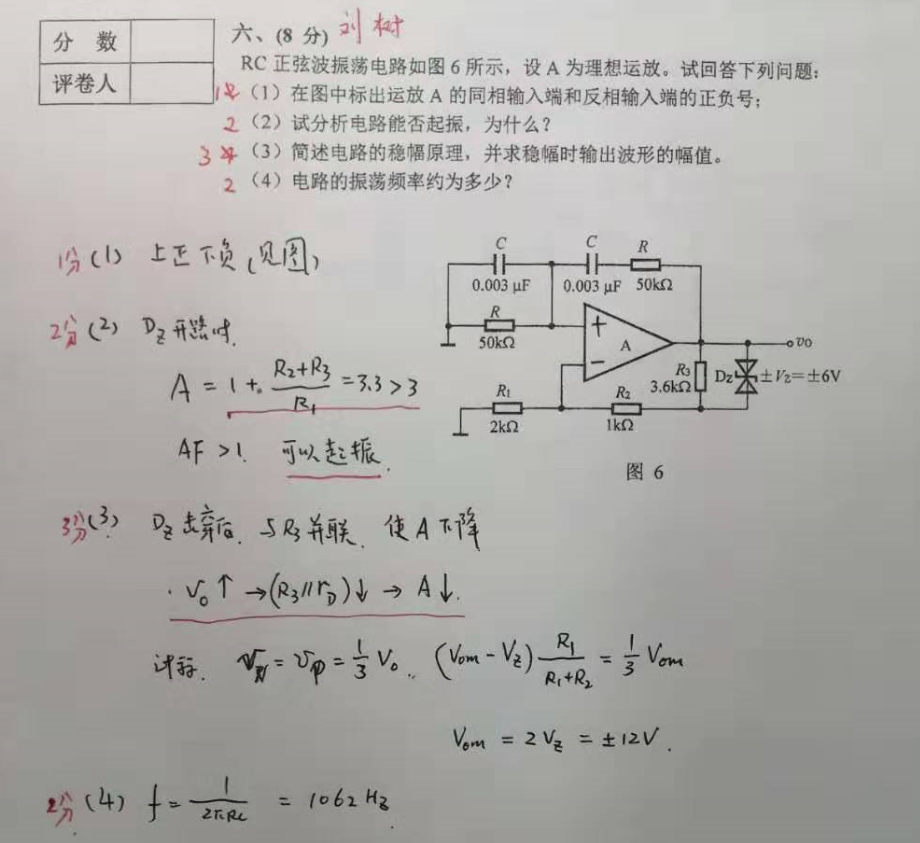 分 数
评卷人
六、(8 分) 刘树
RC 正弦波振荡电路如图 6 所示，设 A 为理想运放。试回答下列问题：
(1) 在图中标出运放 A 的同相输入端和反相输入端的正负号；
2 (2) 试分析电路能否起振，为什么？
3 (3) 简述电路的稳幅原理，并求稳幅时输出波形的幅值。
2 (4) 电路的振荡频率约为多少？
1分 (1) 上正下负（见图）
C C R
0.003 μF 0.003 μF 50kΩ
R
50kΩ
+
A
−
vo
R3
3.6kΩ
Dz ±Vz=±6V
R1 R2
2kΩ 1kΩ
图 6
2分 (2) Dz 开路时.
A = 1 + (R2+R3)/R1 = 3.3 > 3
AF >1. 可以起振.
3分 (3) Dz 击穿后. 与R3并联. 使 A 下降
· vo↑ → (R3//rD)↓ → A↓.
计算. vN = vp = 1/3 Vo. (Vom - Vz) R1/(R1+R2) = 1/3 Vom
Vom = 2Vz = ±12V.
2分 (4) f = 1/(2πRC) = 1062 Hz